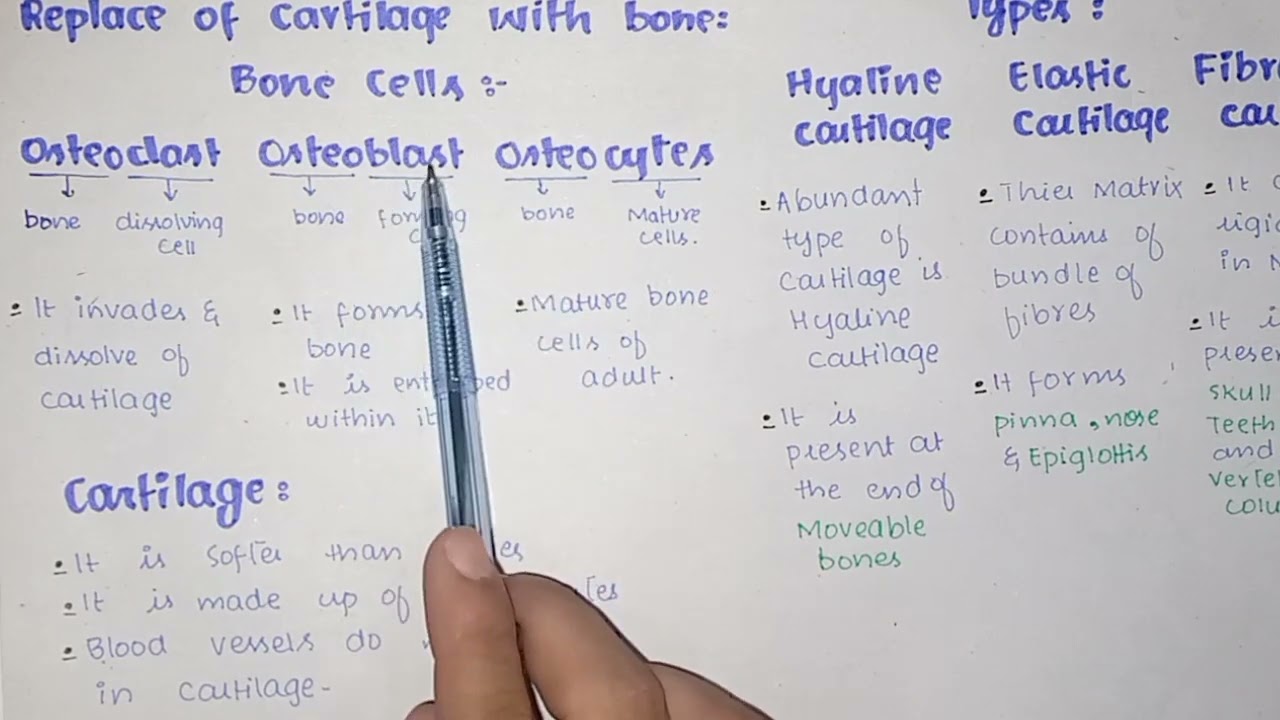 Replace of Cartilage with bone:
Bone Cells :-
Osteoclast Osteoblast Osteocytes
bone dissolving cell
bone
bone Mature cells.
It invades &
dissolve of
cartilage
It forms
bone
It is
within it
Mature bone
cells of
adult.
Cartilage:
It is Softer than
It is made up of
Blood vessels do
in cartilage-
Types:
Hyaline
cartilage
Abundant
type of
Cartilage is
Hyaline
cartilage
It is
present at
the end of
Moveable
bones
Elastic
Cartilage
Their Matrix
contains of
bundle of
fibres
It forms
pinna, nose
& Epiglottis
It
in
It
skull
Teeth
and